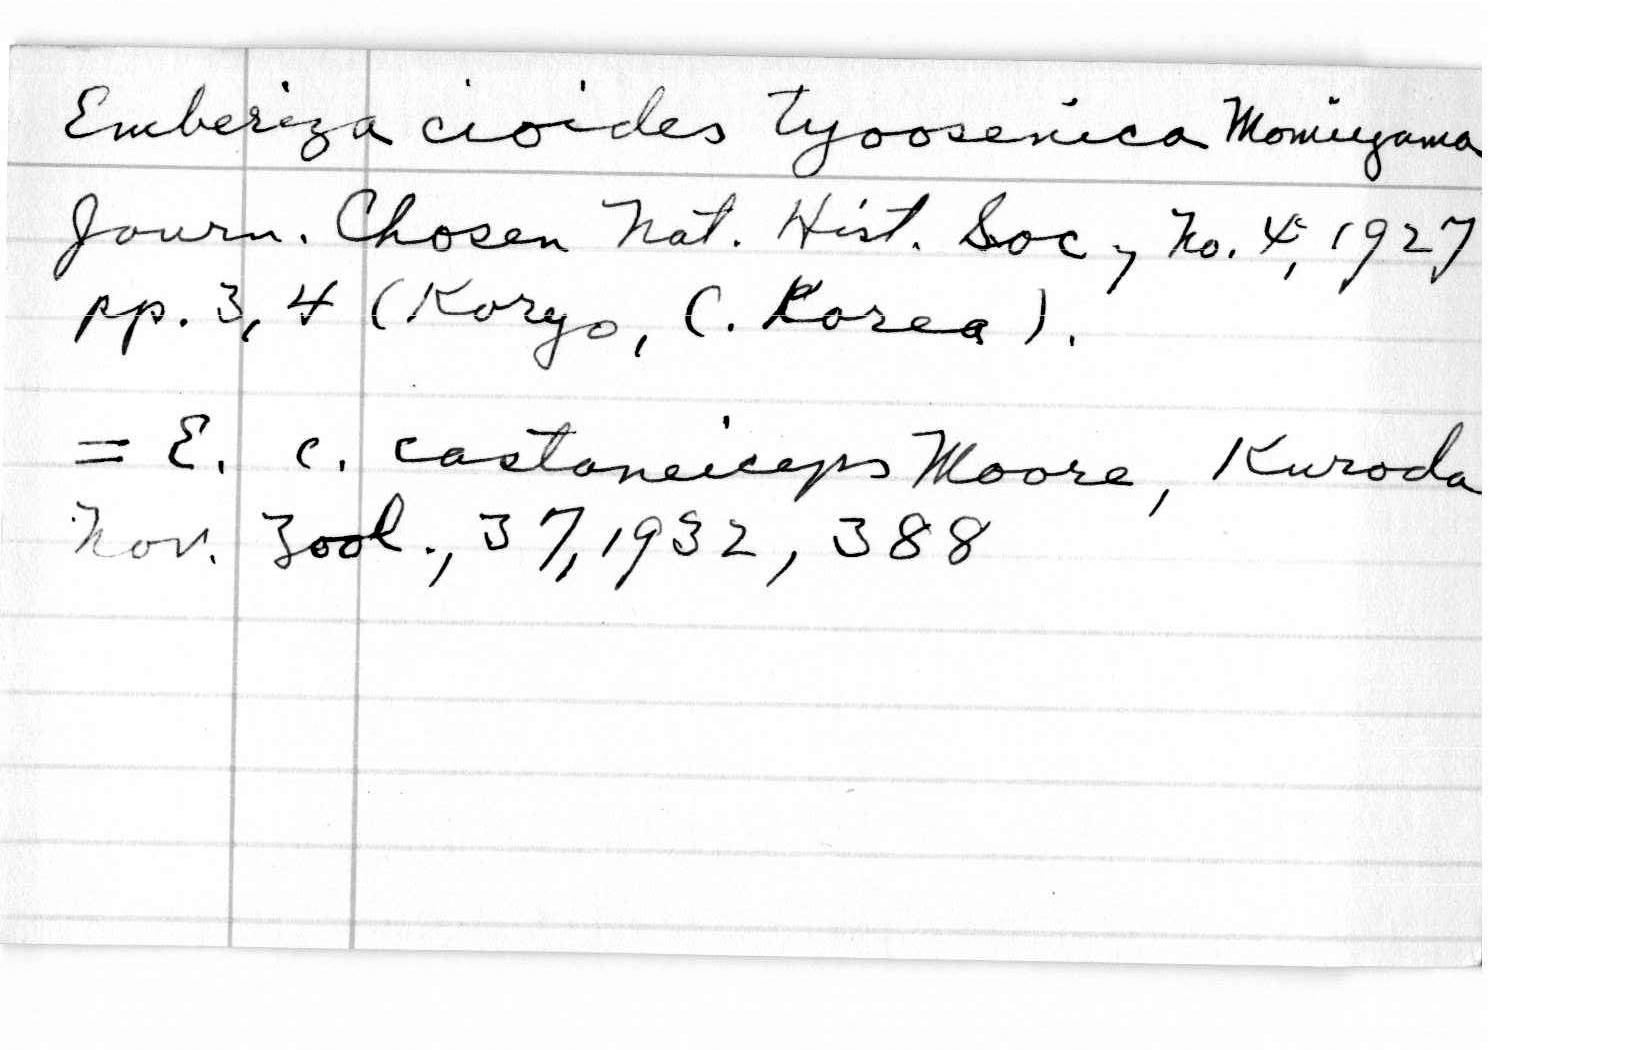 Emberiza cioides tyoosenica Momiyama
Journ. Chosen Nat. Hist. Soc, No. 4, 1927
pp. 3, 4 (Koryo, C. Korea).
= E. c. castaneiceps Moore, Kuroda
Nov. Zool., 37, 1932, 388